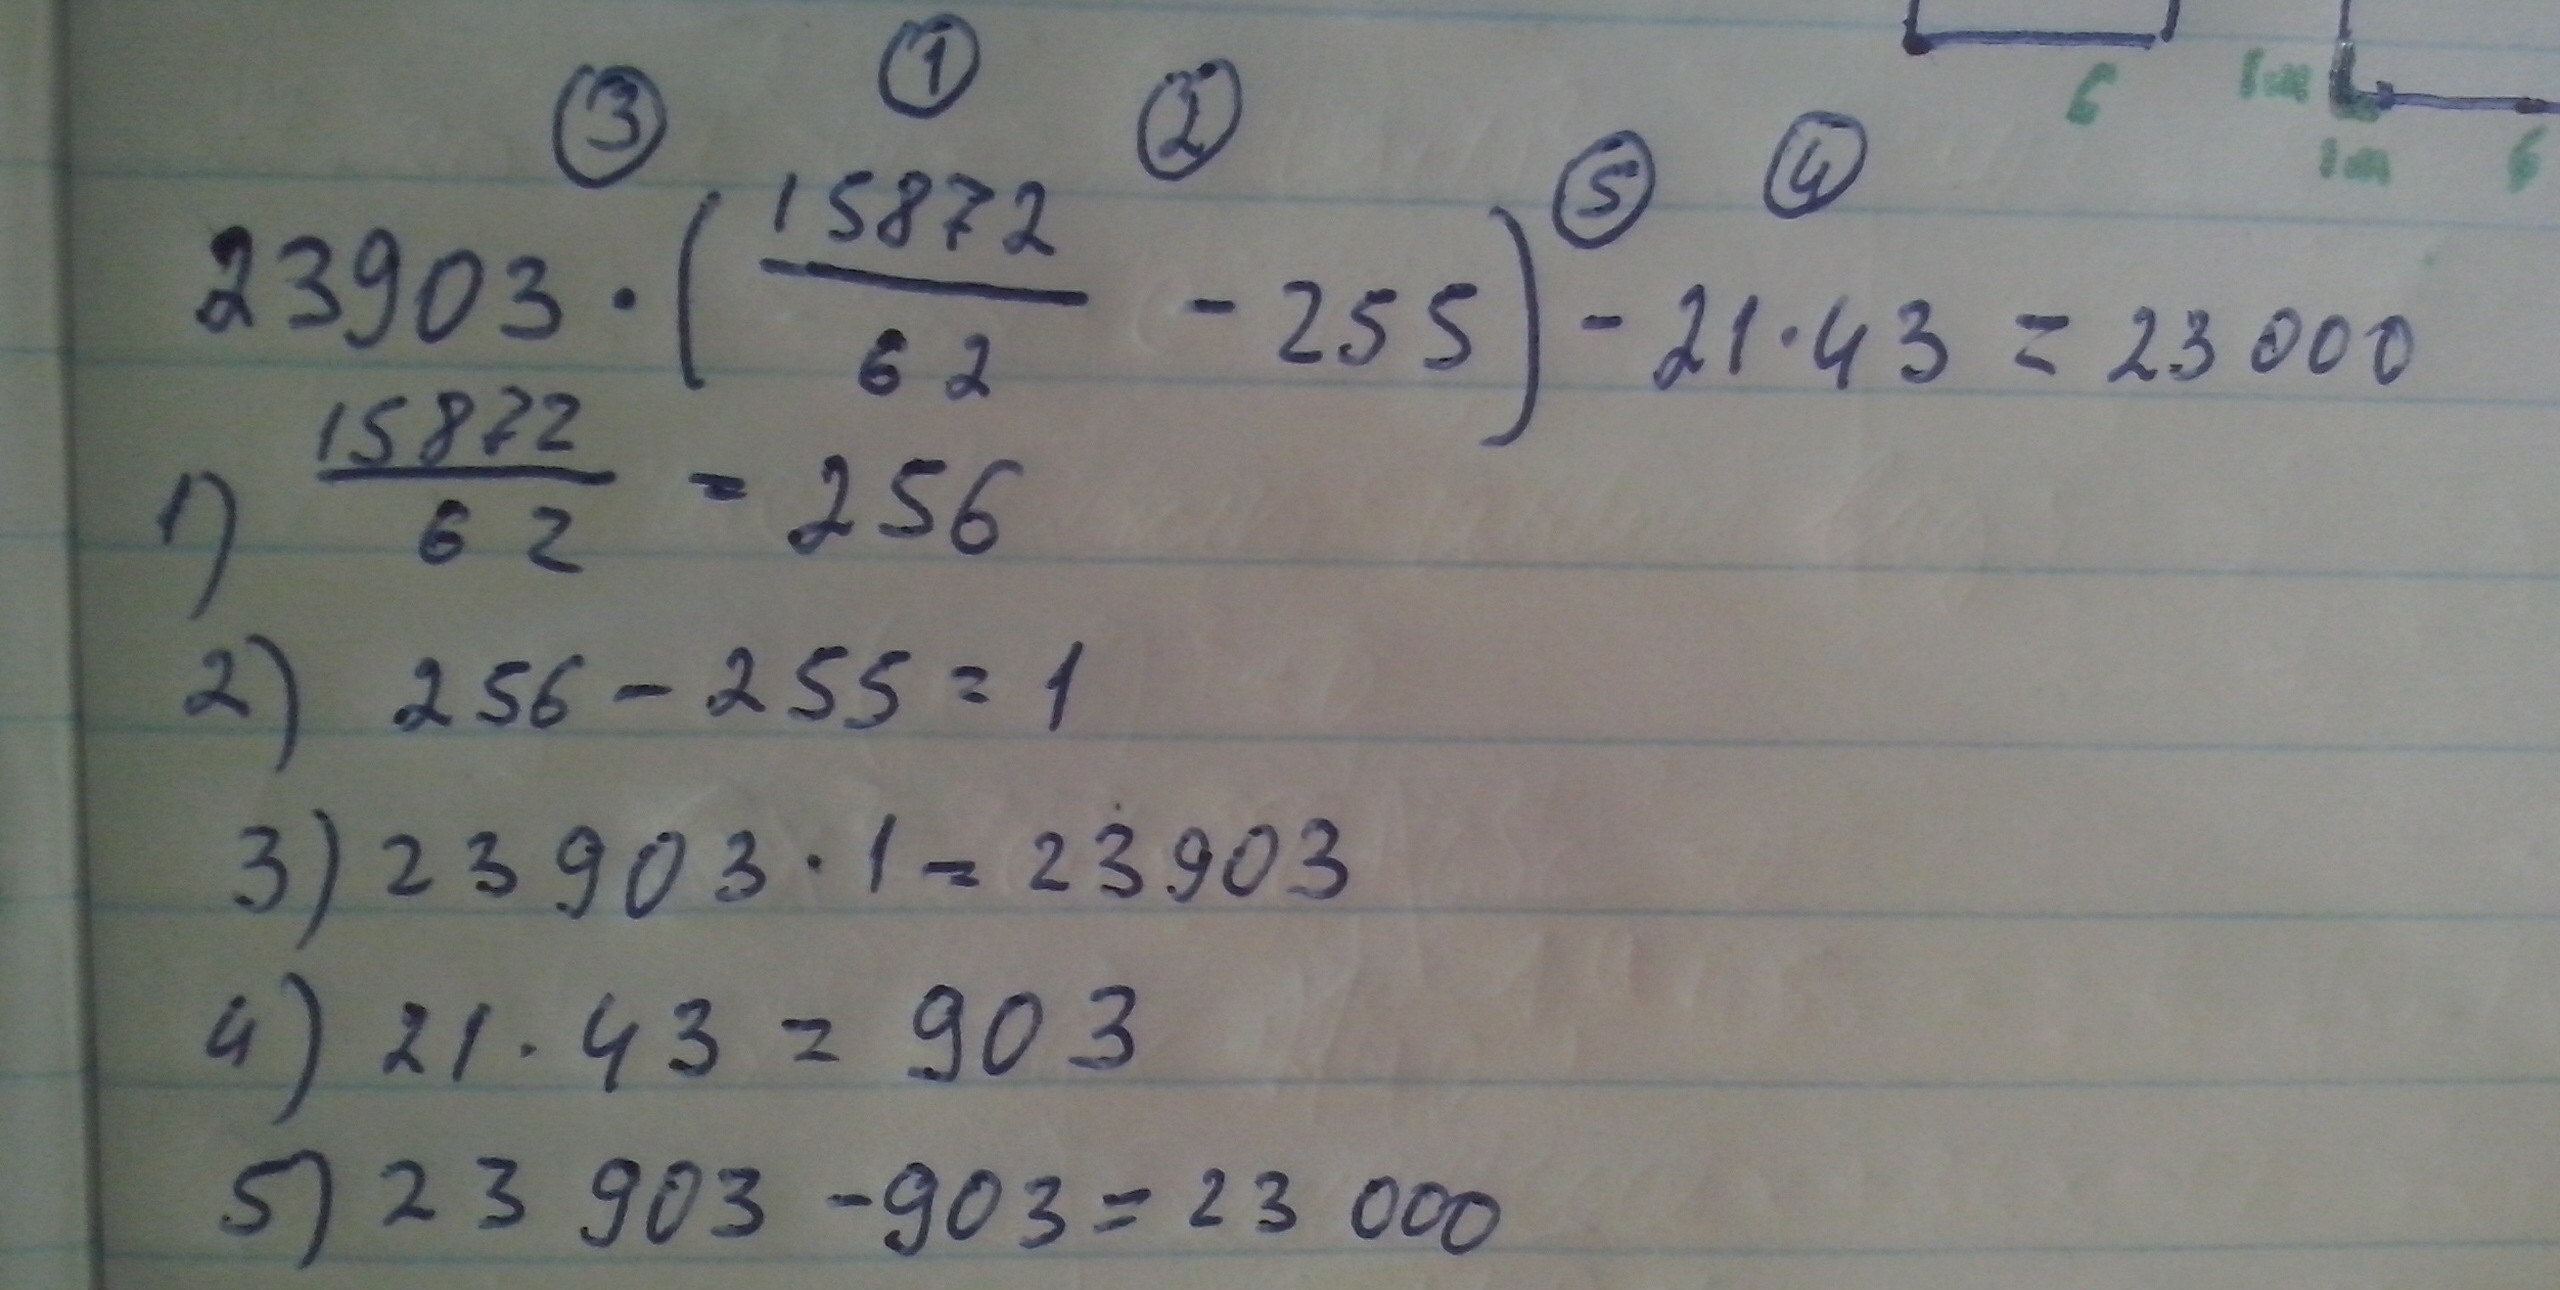 ③ ① ② ⑤ ④
23903 · (15872/62 - 255) - 21 · 43 = 23 000
1) 15872/62 = 256
2) 256 - 255 = 1
3) 23903 · 1 = 23903
4) 21 · 43 = 903
5) 23 903 - 903 = 23 000
6
1m
1m
6